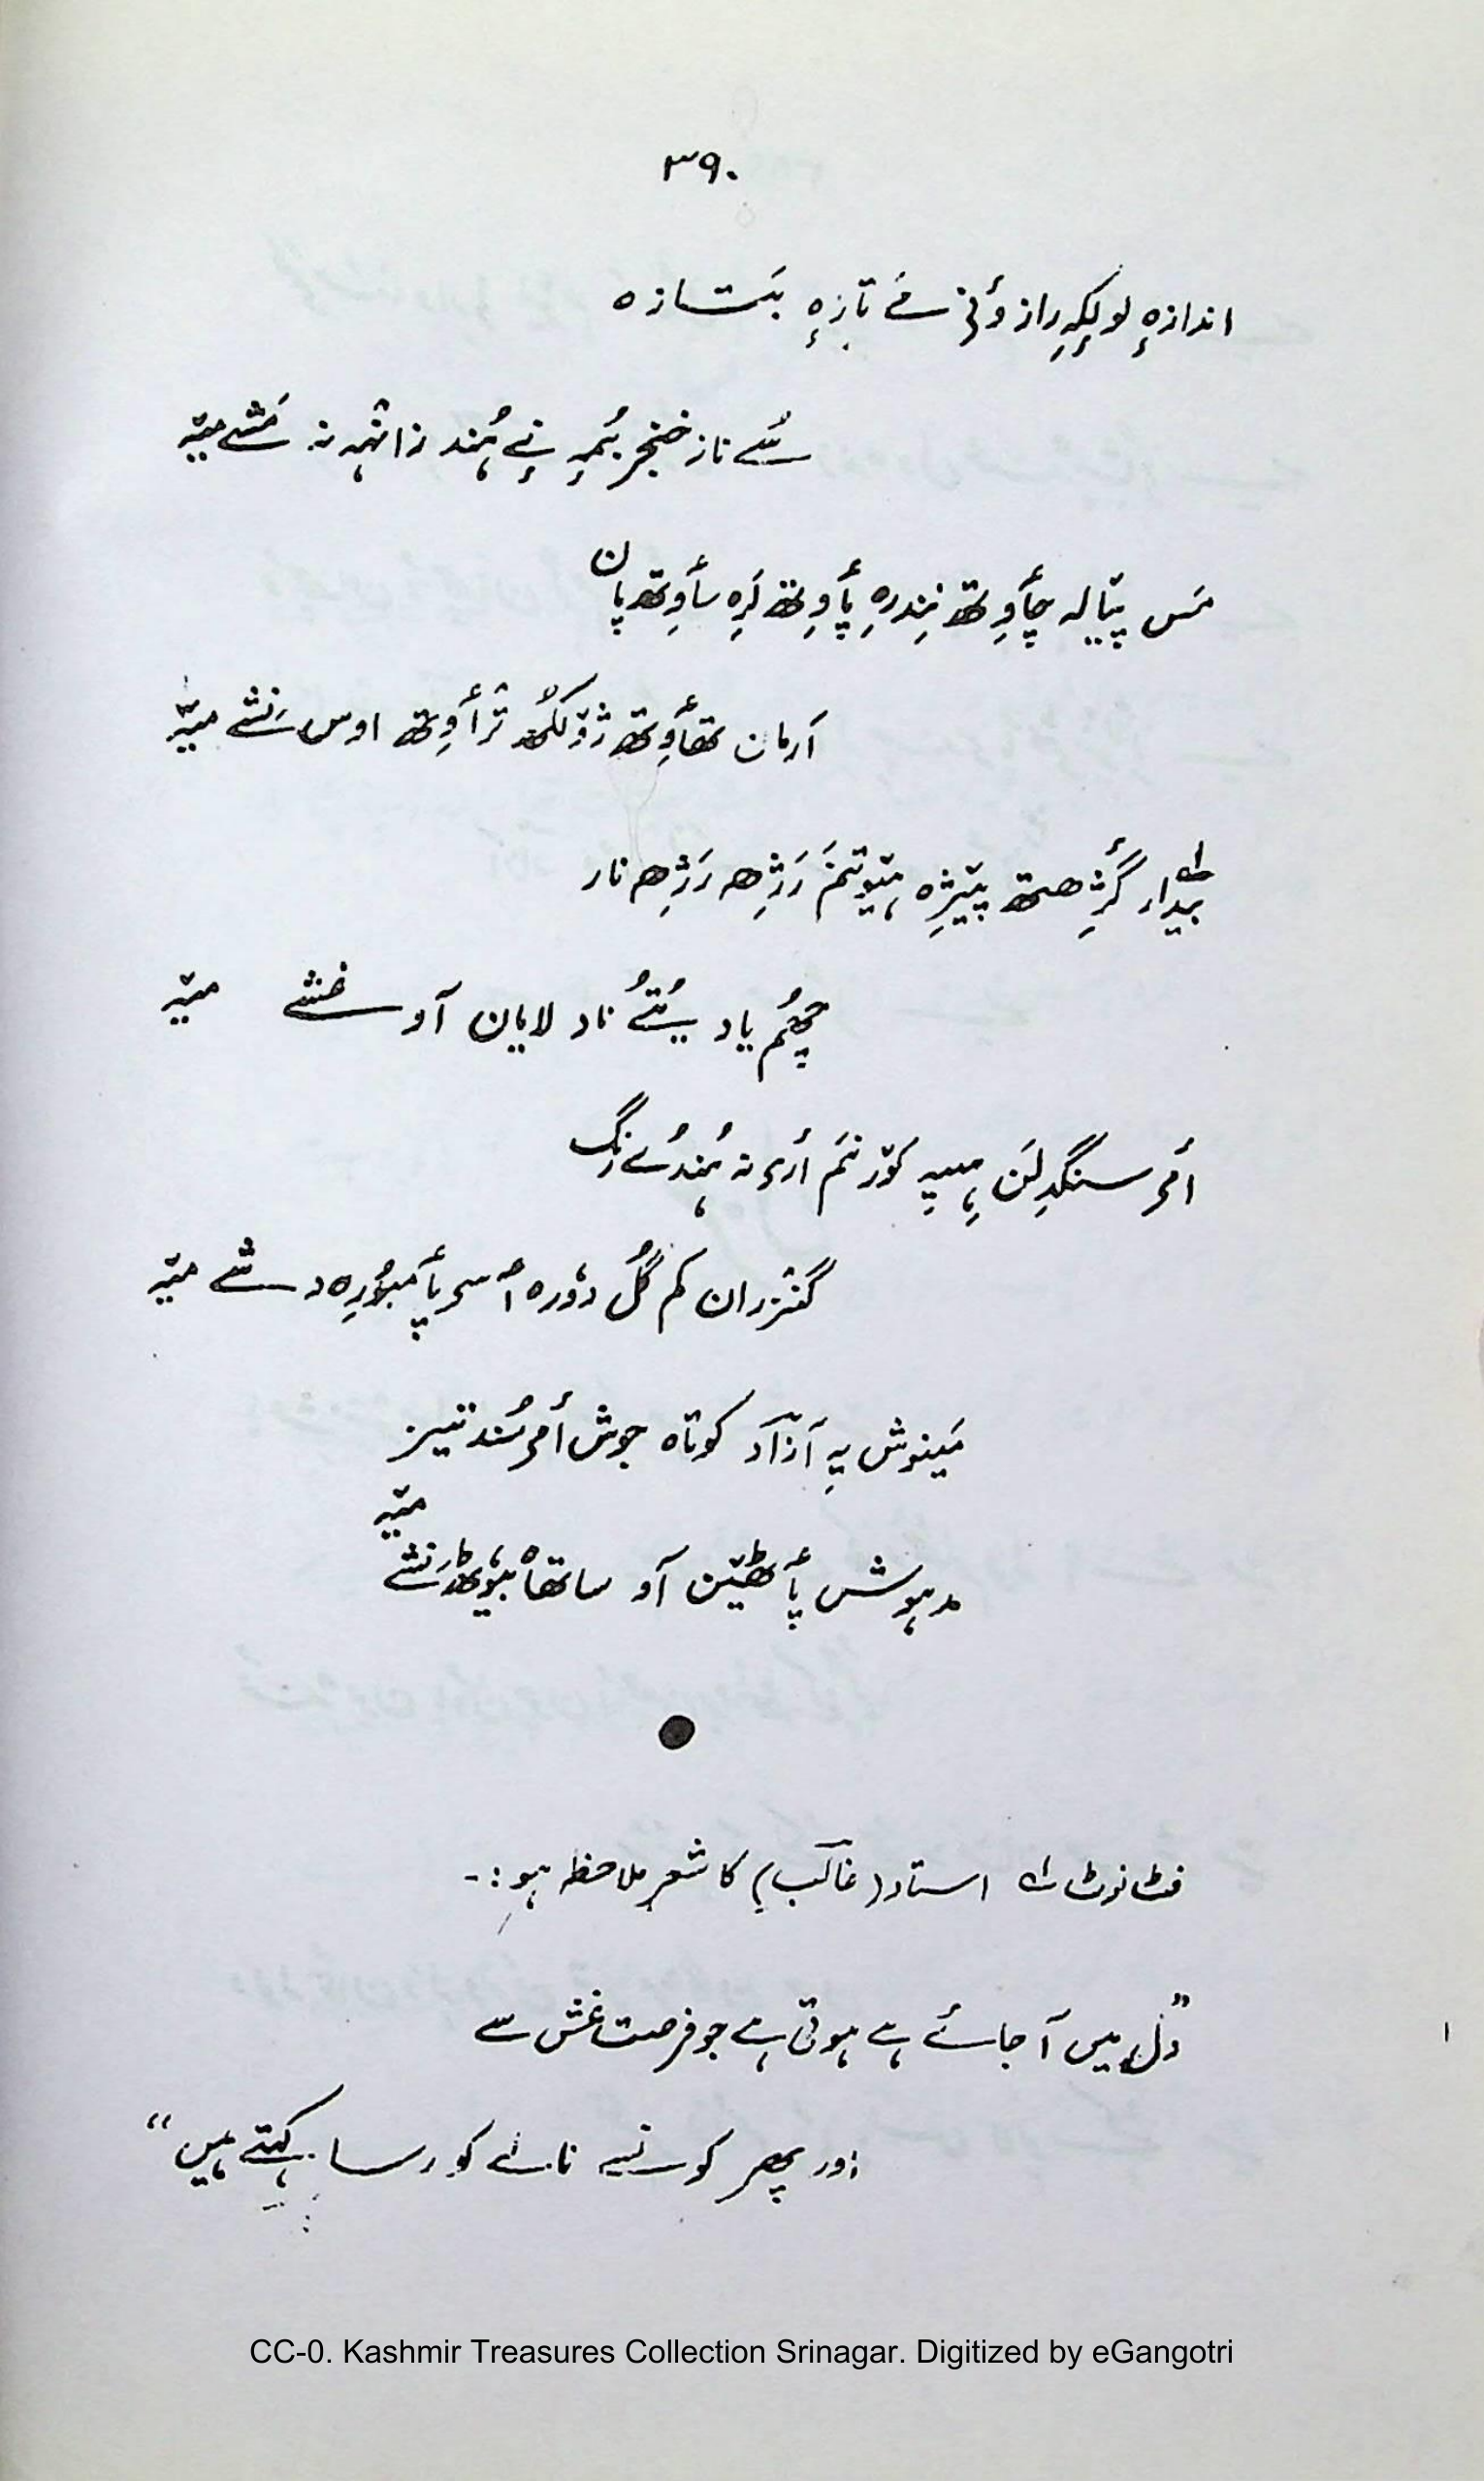 ۳۹۰
اندازہٕ لولکہِ راز وٲنۍ مےٚ تازہٕ بتازہ
سُے ناز خنجر یُمہِ نےٕ ہُند زانٛہہ نہ مَشے مےٚہ
مَس پیٚالہ چٲوِتھ نِندرِہ پٲوِتھ لَرِہ سٲوِتھ پان
آرمان تھٲوِتھ ژوٚلکُھ ترٛٲوِتھ اوس نَشے مےٚہ
بیدار گٔژھتھ پیٚژِہ ہیٚوتنمَ رَژِھ رَژِھ نار
چُھم یاد یُتُے ناد لایان آو غشے میٚہ
أمۍ سنگدِلَن ہیہِ کوٚرنَم أرۍ نہ ہُندُے رنگ
گنزٛران کم گُل دۄرہ أسۍ پٲمبوٗرِہ دشے میٚہ
مَینوش یہِ آزآد کوتاہ جوش أمۍ سُند تیز
مدہوش پٲٹھیٚن آو ساتھاہ بیوٗٹھ نَشے میٚہ
فٹ نوٹ لہ استاد (غالب) کا شعر ملاحظہ ہو:-
"دل میں آ جائے ہے ہوتی ہے جو فرصت غش سے
اور پھر کونسے نالے کو رسا کہتے ہیں"
CC-0. Kashmir Treasures Collection Srinagar. Digitized by eGangotri